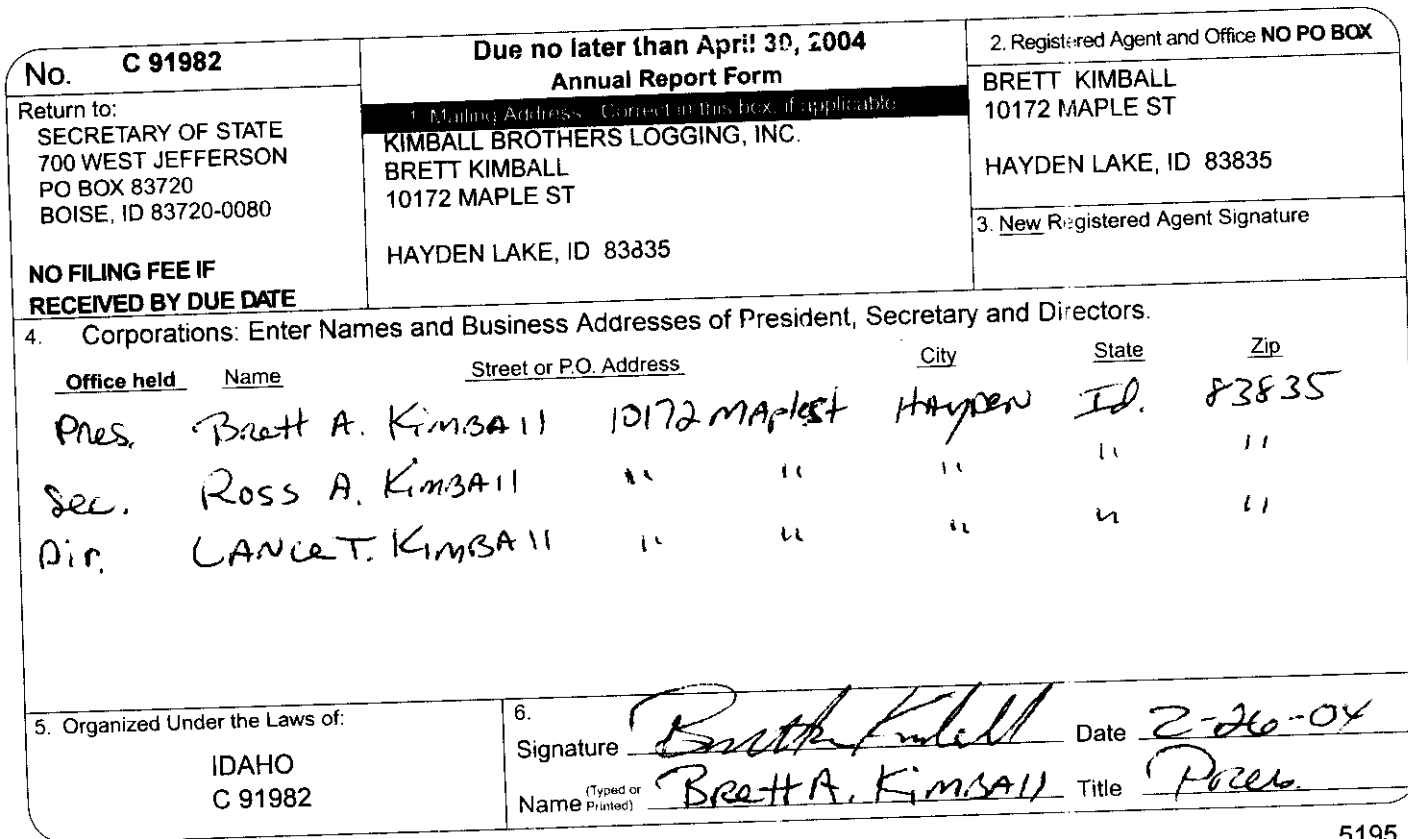 No. C 91982
Return to:
SECRETARY OF STATE
700 WEST JEFFERSON
PO BOX 83720
BOISE, ID 83720-0080
NO FILING FEE IF
RECEIVED BY DUE DATE
Due no later than April 30, 2004
Annual Report Form
1. Mailing Address. Correct in this box, if applicable
KIMBALL BROTHERS LOGGING, INC.
BRETT KIMBALL
10172 MAPLE ST
HAYDEN LAKE, ID 83835
2. Registered Agent and Office NO PO BOX
BRETT KIMBALL
10172 MAPLE ST
HAYDEN LAKE, ID 83835
3. New Registered Agent Signature
4. Corporations: Enter Names and Business Addresses of President, Secretary and Directors.
Office held Name Street or P.O. Address City State Zip
Pres. Brett A. Kimball 10172 Maple st Hayden Id. 83835
Sec. Ross A. Kimball " " " " "
Dir. Lance T. Kimball " " " " "
5. Organized Under the Laws of:
IDAHO
C 91982
6.
Signature Brett A Kimball Date 2-26-04
Name (Typed or Printed) Brett A. Kimball Title Pres.
5195